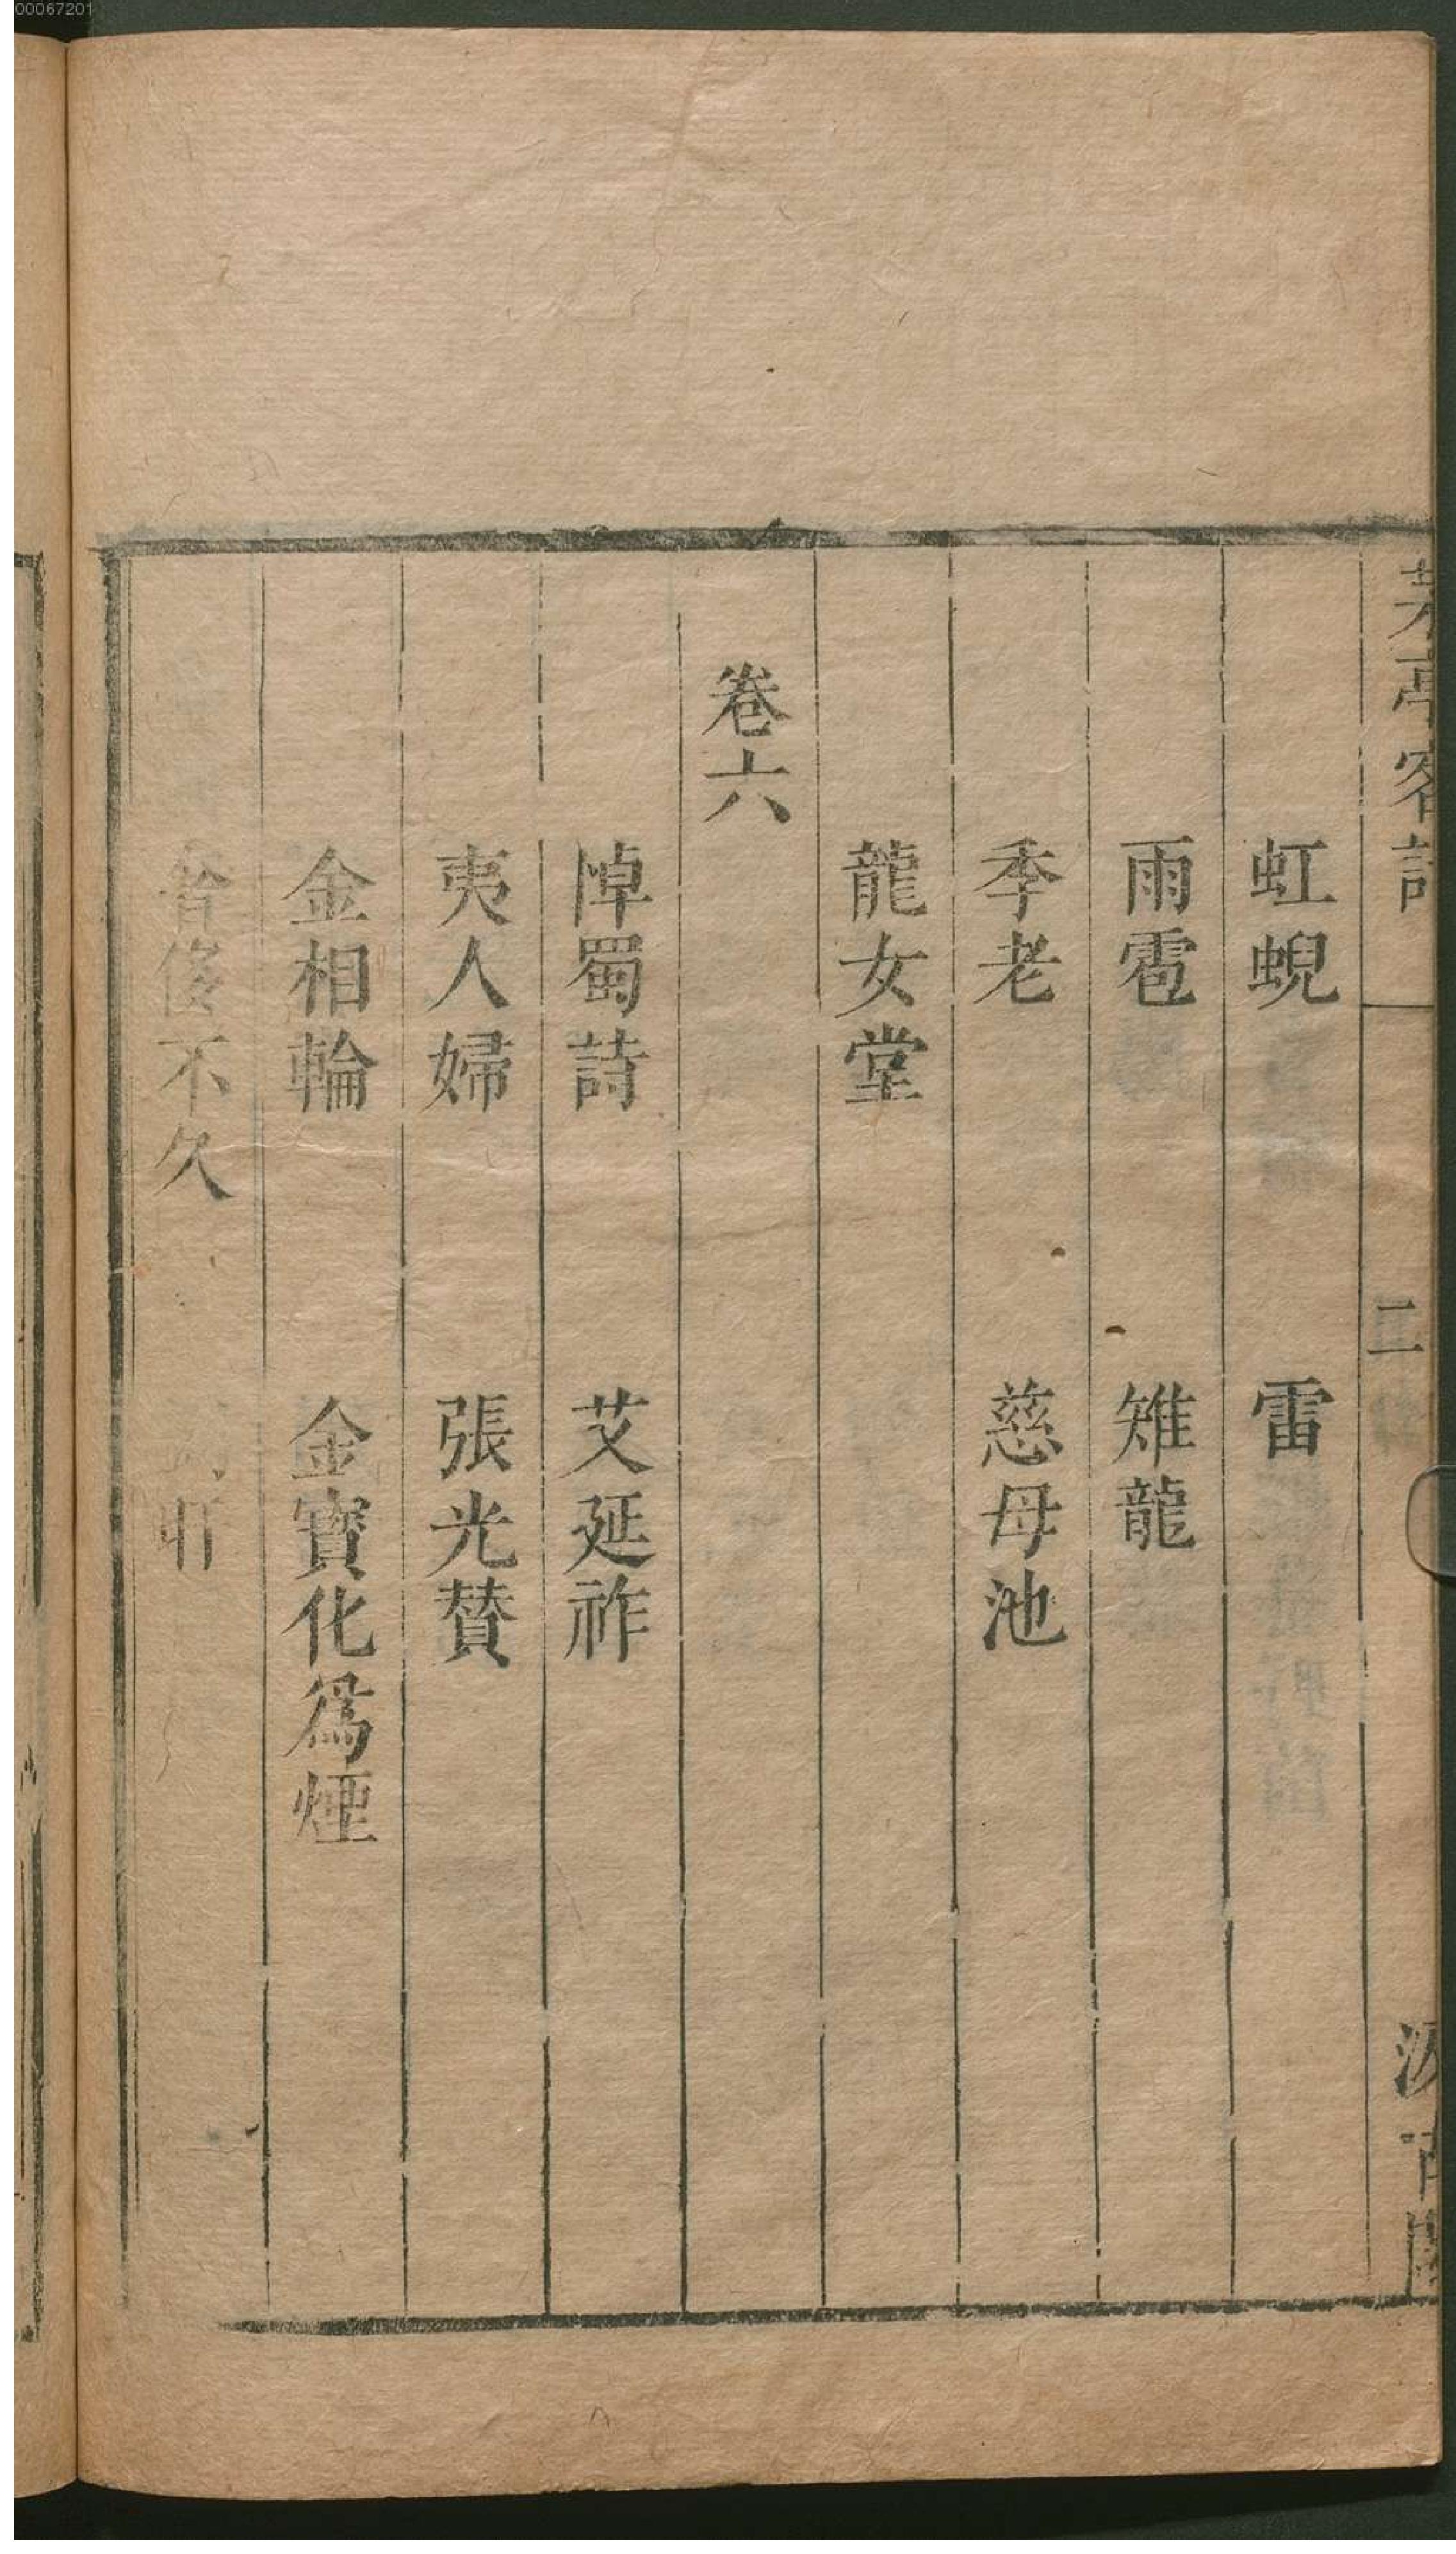 00067201
茅亭客話
二
汲古閣
虹蜺 雷
雨雹 雉龍
季老 慈母池
龍女堂
卷六
悼蜀詩 艾延祚
夷人婦 張光贊
金相輪 金寶化爲煙
不久